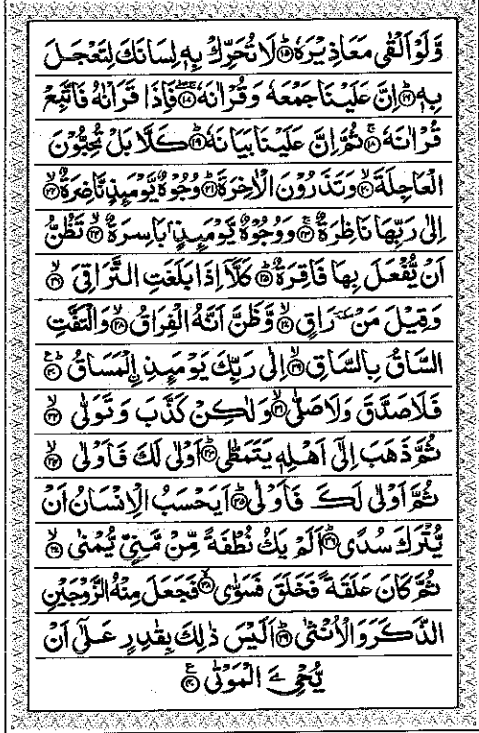 وَّلَوْ اَلْقٰى مَعَاذِيْرَهٗ ؕ﴿۱۵﴾ لَا تُحَرِّكْ بِهٖ لِسَانَكَ لِتَعْجَلَ
بِهٖ ؕ﴿۱۶﴾ اِنَّ عَلَيْنَا جَمْعَهٗ وَقُرْاٰنَهٗ ۚۖ﴿۱۷﴾ فَاِذَا قَرَاْنٰهُ فَاتَّبِعْ
قُرْاٰنَهٗ ۚ﴿۱۸﴾ ثُمَّ اِنَّ عَلَيْنَا بَيَانَهٗ ؕ﴿۱۹﴾ كَلَّا بَلْ تُحِبُّوْنَ
الْعَاجِلَةَ ۙ﴿۲۰﴾ وَتَذَرُوْنَ الْاٰخِرَةَ ؕ﴿۲۱﴾ وُجُوْهٌ يَّوْمَىِٕذٍ نَّاضِرَةٌ ۙ﴿۲۲﴾
اِلٰى رَبِّهَا نَاظِرَةٌ ۚ﴿۲۳﴾ وَوُجُوْهٌ يَّوْمَىِٕذٍۭ بَاسِرَةٌ ۙ﴿۲۴﴾ تَظُنُّ
اَنْ يُّفْعَلَ بِهَا فَاقِرَةٌ ؕ﴿۲۵﴾ كَلَّاۤ اِذَا بَلَغَتِ التَّرَاقِىَ ۙ﴿۲۶﴾
وَقِيْلَ مَنْ ٚ رَاقٍ ۙ﴿۲۷﴾ وَّظَنَّ اَنَّهُ الْفِرَاقُ ۙ﴿۲۸﴾ وَالْتَفَّتِ
السَّاقُ بِالسَّاقِ ۙ﴿۲۹﴾ اِلٰى رَبِّكَ يَوْمَىِٕذِ ࣙالْمَسَاقُ ؕ﴿۳۰﴾
فَلَا صَدَّقَ وَلَا صَلّٰى ۙ﴿۳۱﴾ وَلٰكِنْ كَذَّبَ وَتَوَلّٰى ۙ﴿۳۲﴾
ثُمَّ ذَهَبَ اِلٰۤى اَهْلِهٖ يَتَمَطّٰى ؕ﴿۳۳﴾ اَوْلٰى لَكَ فَاَوْلٰى ۙ﴿۳۴﴾
ثُمَّ اَوْلٰى لَكَ فَاَوْلٰى ؕ﴿۳۵﴾ اَيَحْسَبُ الْاِنْسَانُ اَنْ
يُّتْرَكَ سُدًى ؕ﴿۳۶﴾ اَلَمْ يَكُ نُطْفَةً مِّنْ مَّنِىٍّ يُّمْنٰى ۙ﴿۳۷﴾
ثُمَّ كَانَ عَلَقَةً فَخَلَقَ فَسَوّٰى ۙ﴿۳۸﴾ فَجَعَلَ مِنْهُ الزَّوْجَيْنِ
الذَّكَرَ وَالْاُنْثٰى ؕ﴿۳۹﴾ اَلَيْسَ ذٰلِكَ بِقٰدِرٍ عَلٰۤى اَنْ
يُّحْیِۦَ الْمَوْتٰى ﴿۴۰﴾